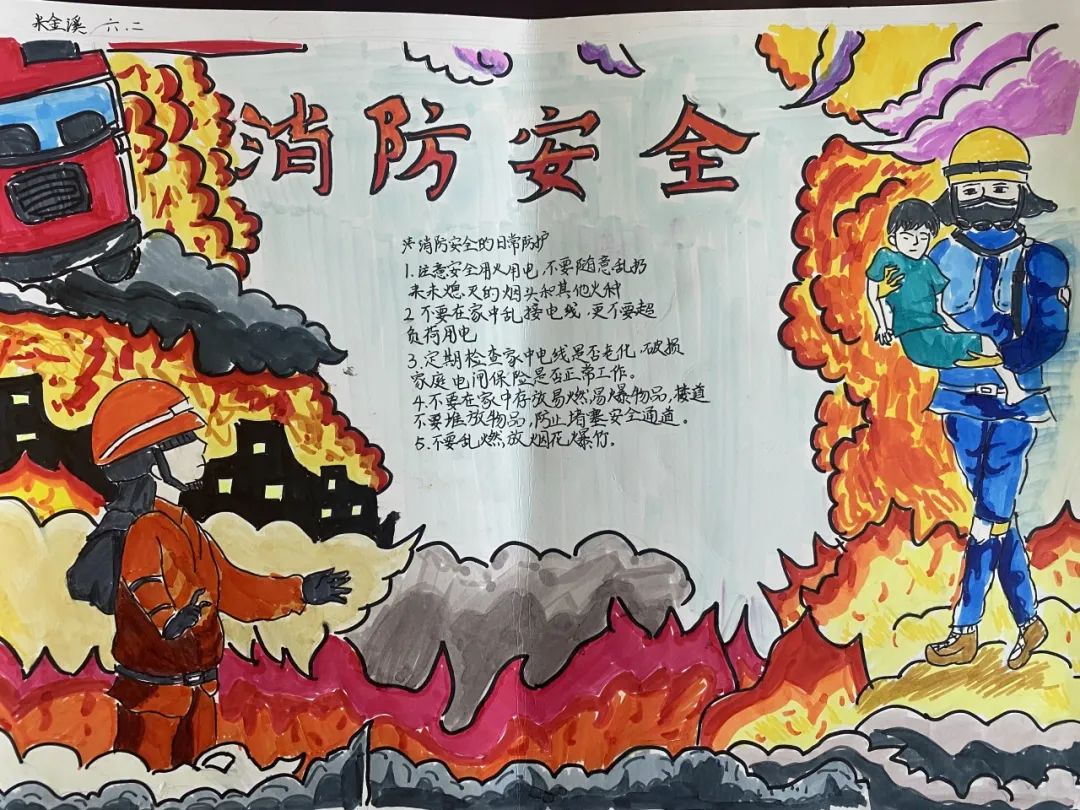 米金溪 六.二
消防安全
消防安全的日常防护
1.注意安全用火用电,不要随意乱扔
来未熄灭的烟头和其他火种
2 不要在家中乱接电线,更不要超
负荷用电
3.定期检查家中电线是否老化,破损
家庭电间保险是否正常工作。
4.不要在家中存放易燃易爆物品,楼道
不要堆放物品,防止堵塞安全通道。
5.不要乱燃放烟花爆竹.